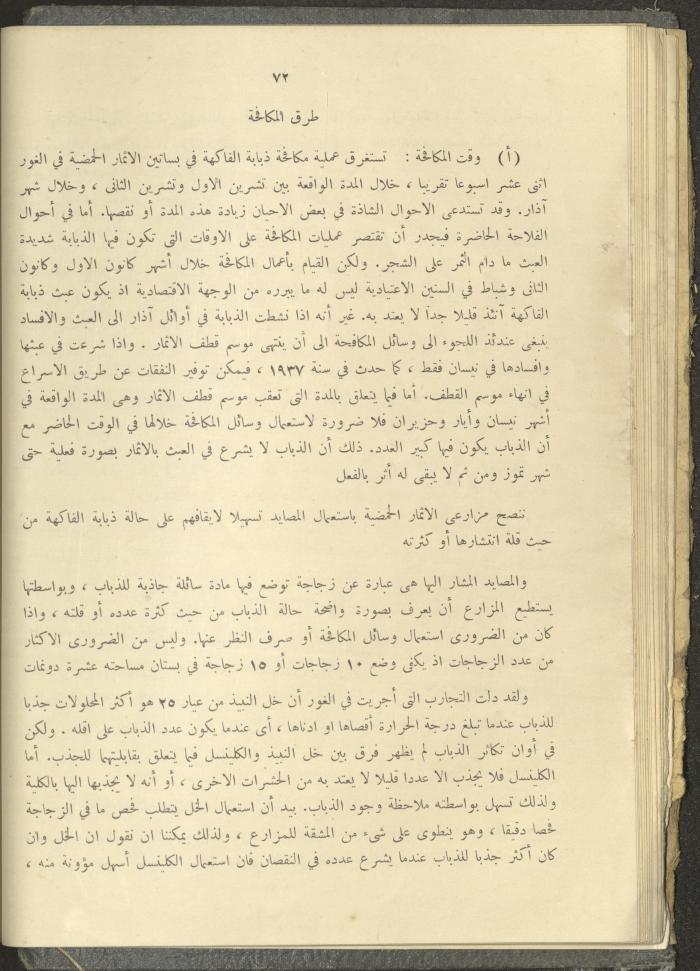 ٧٢
طرق المكافحة
(أ) وقت المكافحة : تستغرق عملية مكافحة ذبابة الفاكهة في بساتين الاثمار الحمضية في الغور
اثنى عشر اسبوعا تقريبا ، خلال المدة الواقعة بين تشرين الاول وتشرين الثانى ، وخلال شهر
آذار. وقد تستدعى الاحوال الشاذة في بعض الاحيان زيادة هذه المدة أو نقصها. أما في أحوال
الفلاحة الحاضرة فيجدر أن تقتصر عمليات المكافحة على الاوقات التى تكون فيها الذبابة شديدة
العبث ما دام الثمر على الشجر. ولكن القيام بأعمال المكافحة خلال أشهر كانون الاول وكانون
الثانى وشباط في السنين الاعتيادية ليس له ما يبرره من الوجهة الاقتصادية اذ يكون عبث ذبابة
الفاكهة آنئذ قليلا جدا لا يعتد به. غير أنه اذا نشطت الذبابة في أوائل آذار الى العبث والافساد
ينبغى عندئذ اللجوء الى وسائل المكافحة الى أن ينتهى موسم قطف الاثمار . واذا شرعت في عبثها
وافسادها في نيسان فقط ، كما حدث في سنة ١٩٣٧ ، فيمكن توفير النفقات عن طريق الاسراع
في انهاء موسم القطف. أما فيما يتعلق بالمدة التى تعقب موسم قطف الاثمار وهى المدة الواقعة في
أشهر نيسان وأيار وحزيران فلا ضرورة لاستعمال وسائل المكافحة خلالها في الوقت الحاضر مع
أن الذباب يكون فيها كبير العدد. ذلك أن الذباب لا يشرع في العبث بالاثمار بصورة فعلية حتى
شهر تموز ومن ثم لا يبقى له أثر بالفعل
ننصح مزارعى الاثمار الحمضية باستعمال المصايد تسهيلا لايقافهم على حالة ذبابة الفاكهة من
حيث قلة انتشارها أو كثرته
والمصايد المشار اليها هى عبارة عن زجاجة توضع فيها مادة سائلة جاذبة للذباب ، وبواسطتها
يستطيع المزارع أن يعرف بصورة واضحة حالة الذباب من حيث كثرة عدده أو قلته ، واذا
كان من الضرورى استعمال وسائل المكافحة أو صرف النظر عنها. وليس من الضرورى الاكثار
من عدد الزجاجات اذ يكفى وضع ١٠ زجاجات أو ١٥ زجاجة في بستان مساحته عشرة دونمات
ولقد دلت التجارب التى أجريت في الغور أن خل النبيذ من عيار ٢٥ هو أكثر المحلولات جذبا
للذباب عندما تبلغ درجة الحرارة أقصاها او ادناها ، أى عندما يكون عدد الذباب على اقله . ولكن
في أوان تكاثر الذباب لم يظهر فرق بين خل النبيذ والكلينسل فيما يتعلق بقابليتهما للجذب. أما
الكلينسل فلا يجذب الا عددا قليلا لا يعتد به من الحشرات الاخرى ، أو أنه لا يجذبها اليها بالكلية
ولذلك تسهل بواسطته ملاحظة وجود الذباب. بيد أن استعمال الخل يتطلب فحص ما في الزجاجة
فحصا دقيقا ، وهو ينطوى على شىء من المشقة للمزارع ، ولذلك يمكننا ان نقول ان الخل وان
كان أكثر جذبا للذباب عندما يشرع عدده في النقصان فان استعمال الكلينسل أسهل مؤونة منه ،